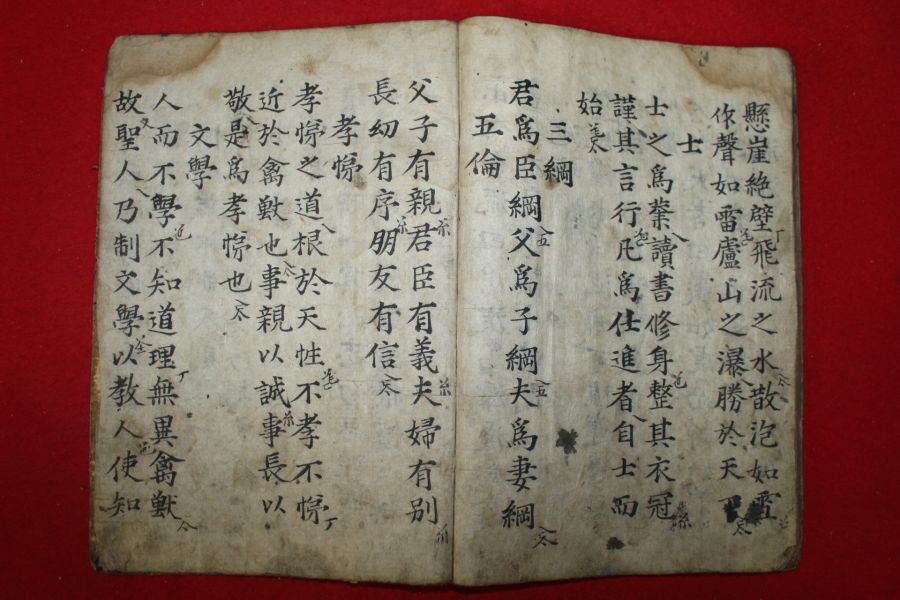 懸崖絶壁飛流之水散泡如雪
作聲如雷廬山之瀑勝於天下
士
士之爲業讀書修身整其衣冠
謹其言行凡爲仕進者自士而
始
三綱
君爲臣綱父爲子綱夫爲妻綱
五倫
父子有親君臣有義夫婦有別
長幼有序朋友有信
孝悌
孝悌之道根於天性不孝不悌
近於禽獸也事親以誠事長以
敬是爲孝悌也
文學
人而不學不知道理無異禽獸
故聖人乃制文學以教人使知